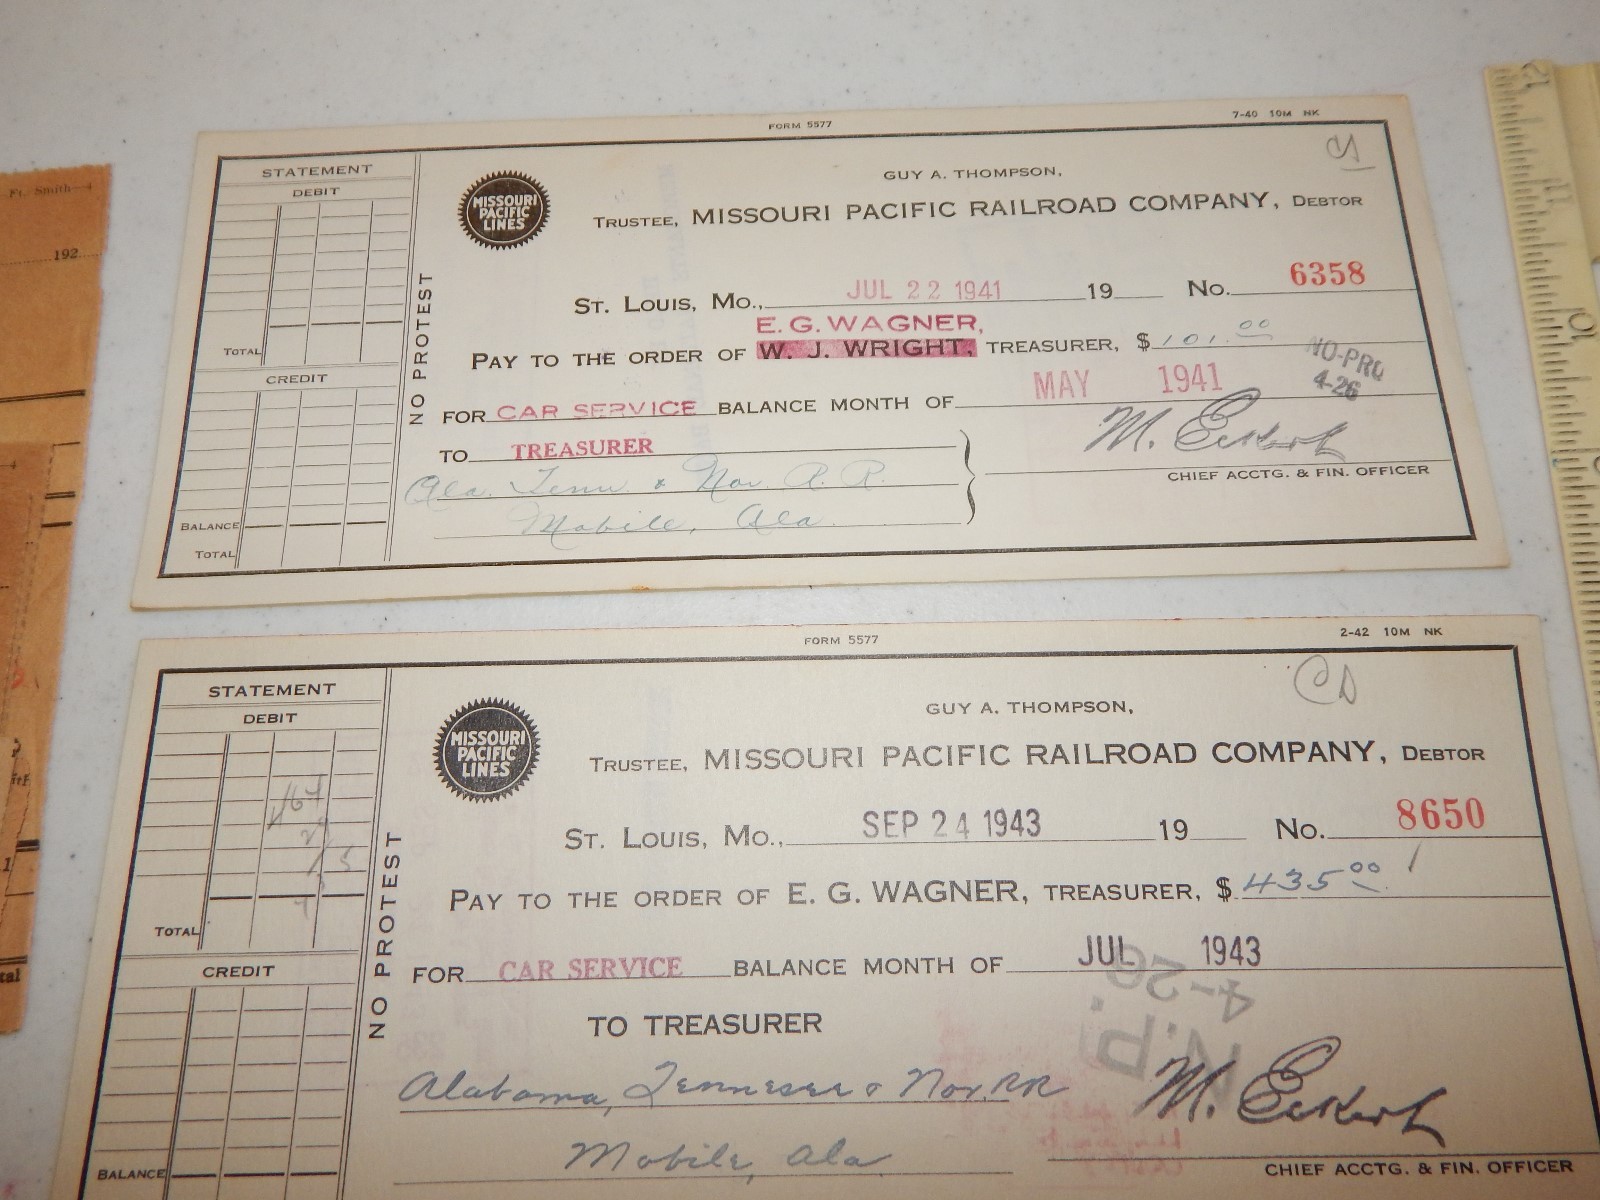 Ft. Smith—4
192
FORM 5577
7-40 10M NK
STATEMENT
DEBIT
TOTAL
CREDIT
BALANCE
TOTAL
NO PROTEST
MISSOURI
PACIFIC
LINES
GUY A. THOMPSON,
TRUSTEE, MISSOURI PACIFIC RAILROAD COMPANY, DEBTOR
ST. LOUIS, MO., JUL 22 1941 19 No. 6358
E. G. WAGNER,
PAY TO THE ORDER OF W. J. WRIGHT, TREASURER, $ 101.00
NO-PRO
4-26
FOR CAR SERVICE BALANCE MONTH OF MAY 1941
M. Eckert
TO TREASURER
CHIEF ACCTG. & FIN. OFFICER
Ala. Tenn & Nor. R. R.
Mobile, Ala.
FORM 5577
2-42 10M NK
STATEMENT
DEBIT
TOTAL
CREDIT
BALANCE
NO PROTEST
MISSOURI
PACIFIC
LINES
CD
GUY A. THOMPSON,
TRUSTEE, MISSOURI PACIFIC RAILROAD COMPANY, DEBTOR
ST. LOUIS, MO., SEP 24 1943 19 No. 8650
PAY TO THE ORDER OF E. G. WAGNER, TREASURER, $ 435.00
FOR CAR SERVICE BALANCE MONTH OF JUL 1943
N.P.
4-26
TO TREASURER
Alabama, Tennessee & Nor. RR
M. Eckert
Mobile, Ala
CHIEF ACCTG. & FIN. OFFICER